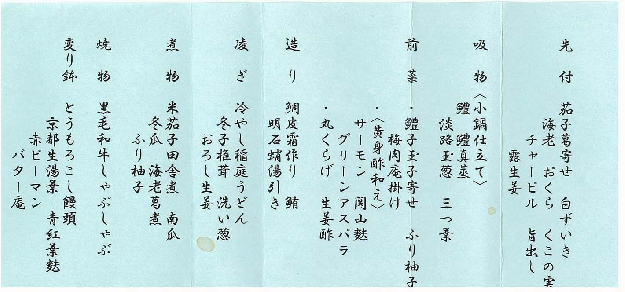 先付 茄子葛寄せ 白ずいき
海老 おくら くこの実
チャービル 旨出し
露生姜
吸物 〈小鍋仕立て〉
鱧 鱧真蒸
淡路玉葱 三つ葉
前菜 ・鱧子玉子寄せ ふり柚子
梅肉庵掛け
・〈黄身酢和え〉
サーモン 岡山麩
グリーンアスパラ
・丸くらげ 生姜酢
造り 鯛皮霜作り 鮪
明石蛸湯引き
凌ぎ 冷やし稲庭うどん
冬子椎茸 洗い葱
おろし生姜
煮物 米茄子田舎煮 南瓜
冬瓜 海老葛煮
ふり柚子
焼物 黒毛和牛しゃぶしゃぶ
変り鉢 とうもろこし饅頭
京都生湯葉 青紅葉麩
赤ピーマン
バター庵